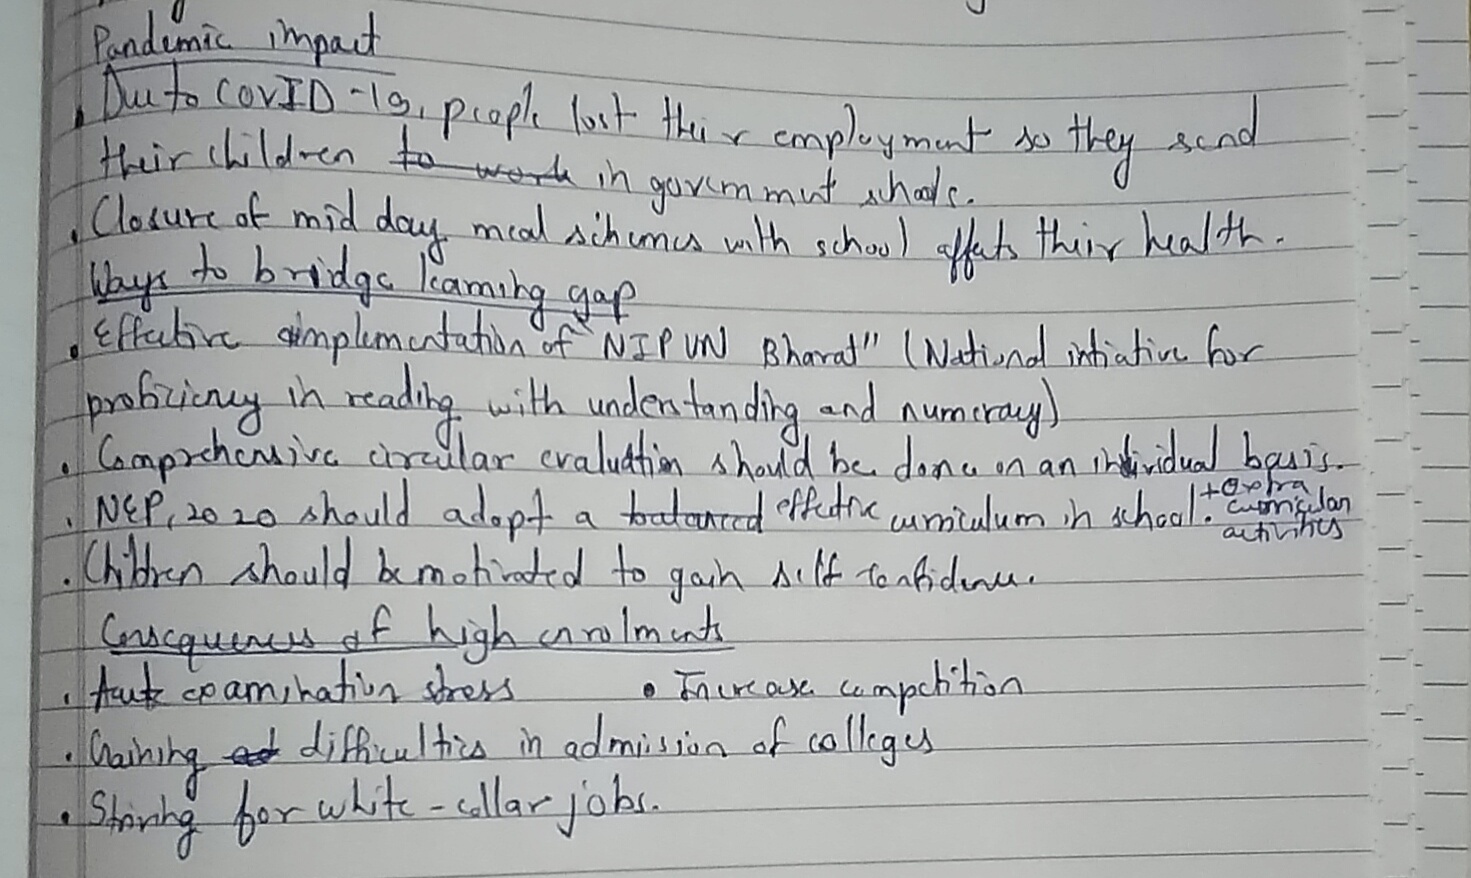 Pandemic impact
. Due to COVID-19, people lost their employment so they send
their children to work in government schools.
. Closure of mid day meal schemes with school affets their health.
Ways to bridge learning gap
. Effective implementation of "NIPUN Bharat" (National intiative for
proficiency in reading with understanding and numeracy)
. Comprehensive circular evaluation should be done on an individual basis.
. NEP, 2020 should adopt a balanced effective curriculum in school. + extra curricular activities
. Children should be motivated to gain self confidence.
Consequences of high enrolments
. Acute examination stress • Increase competition
. Gaining difficulties in admission of colleges
. Striving for white-collar jobs.